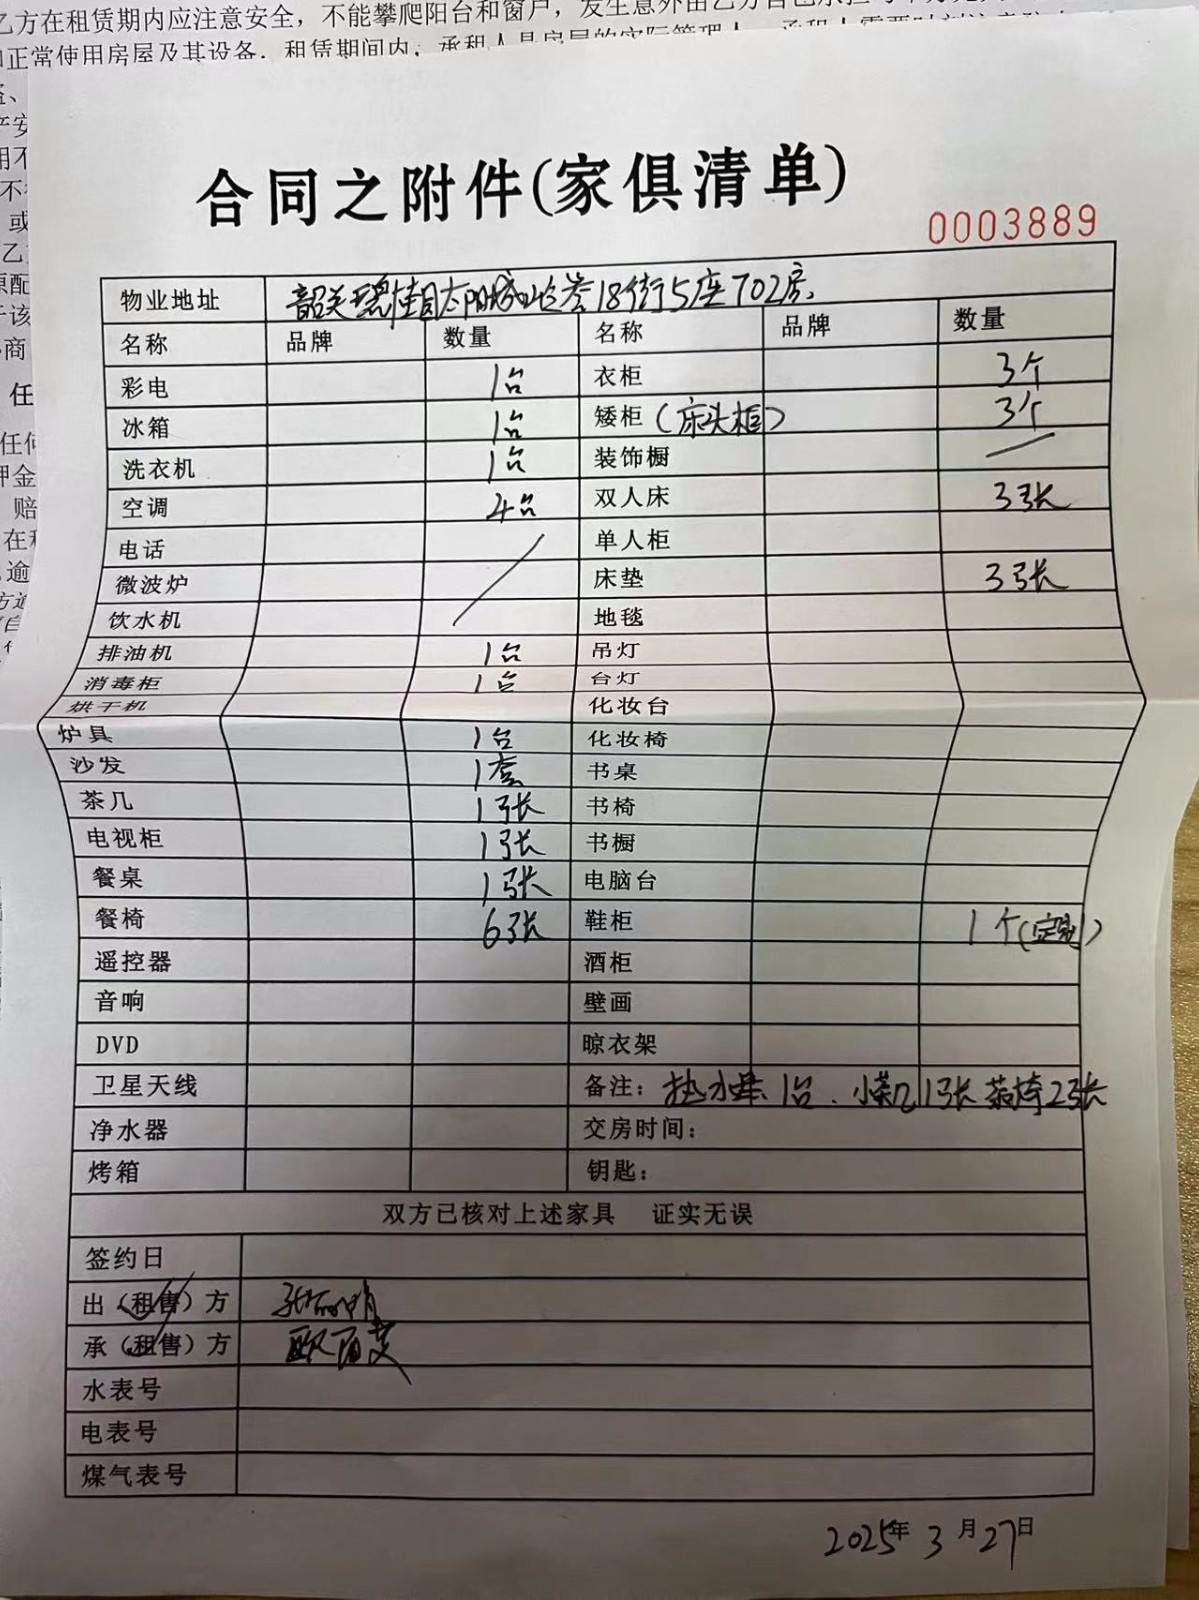 乙方在租赁期内应注意安全，不能攀爬阳台和窗户，发生意外由乙方自己承担
正常使用房屋及其设备。租赁期间内，承租人是房屋的实际管理人
合同之附件(家俱清单)
0003889
物业地址 韶关碧桂园太阳城 18街5座702房
名称 品牌 数量 名称 品牌 数量
彩电 1台 衣柜 3个
冰箱 1台 矮柜(床头柜) 3个
洗衣机 1台 装饰橱 —
空调 4台 双人床 3张
电话 单人柜
微波炉 / 床垫 3张
饮水机 地毯
排油机 1台 吊灯
消毒柜 1台 台灯
烘干机 化妆台
炉具 1台 化妆椅
沙发 1套 书桌
茶几 1张 书椅
电视柜 1张 书橱
餐桌 1张 电脑台
餐椅 6张 鞋柜 1个(定制)
遥控器 酒柜
音响 壁画
DVD 晾衣架
卫星天线 备注：热水器1台、小茶几1张 茶椅2张
净水器 交房时间：
烤箱 钥匙：
双方已核对上述家具 证实无误
签约日
出（租售）方
承（租售）方
水表号
电表号
煤气表号
2025年3月27日